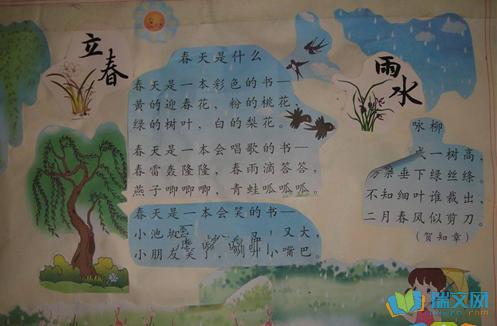 立春
春天是什么
春天是一本彩色的书—
黄的迎春花，粉的桃花，
绿的树叶，白的梨花。
春天是一本会唱歌的书—
春雷轰隆隆，春雨滴答答，
燕子唧唧唧，青蛙呱呱呱。
春天是一本会笑的书—
小池 又大，
小朋友笑了， 小嘴巴
雨水
咏柳
一树高，
垂下绿丝绦
不知细叶谁裁出，
二月春风似剪刀。
(贺知章)
瑞文网